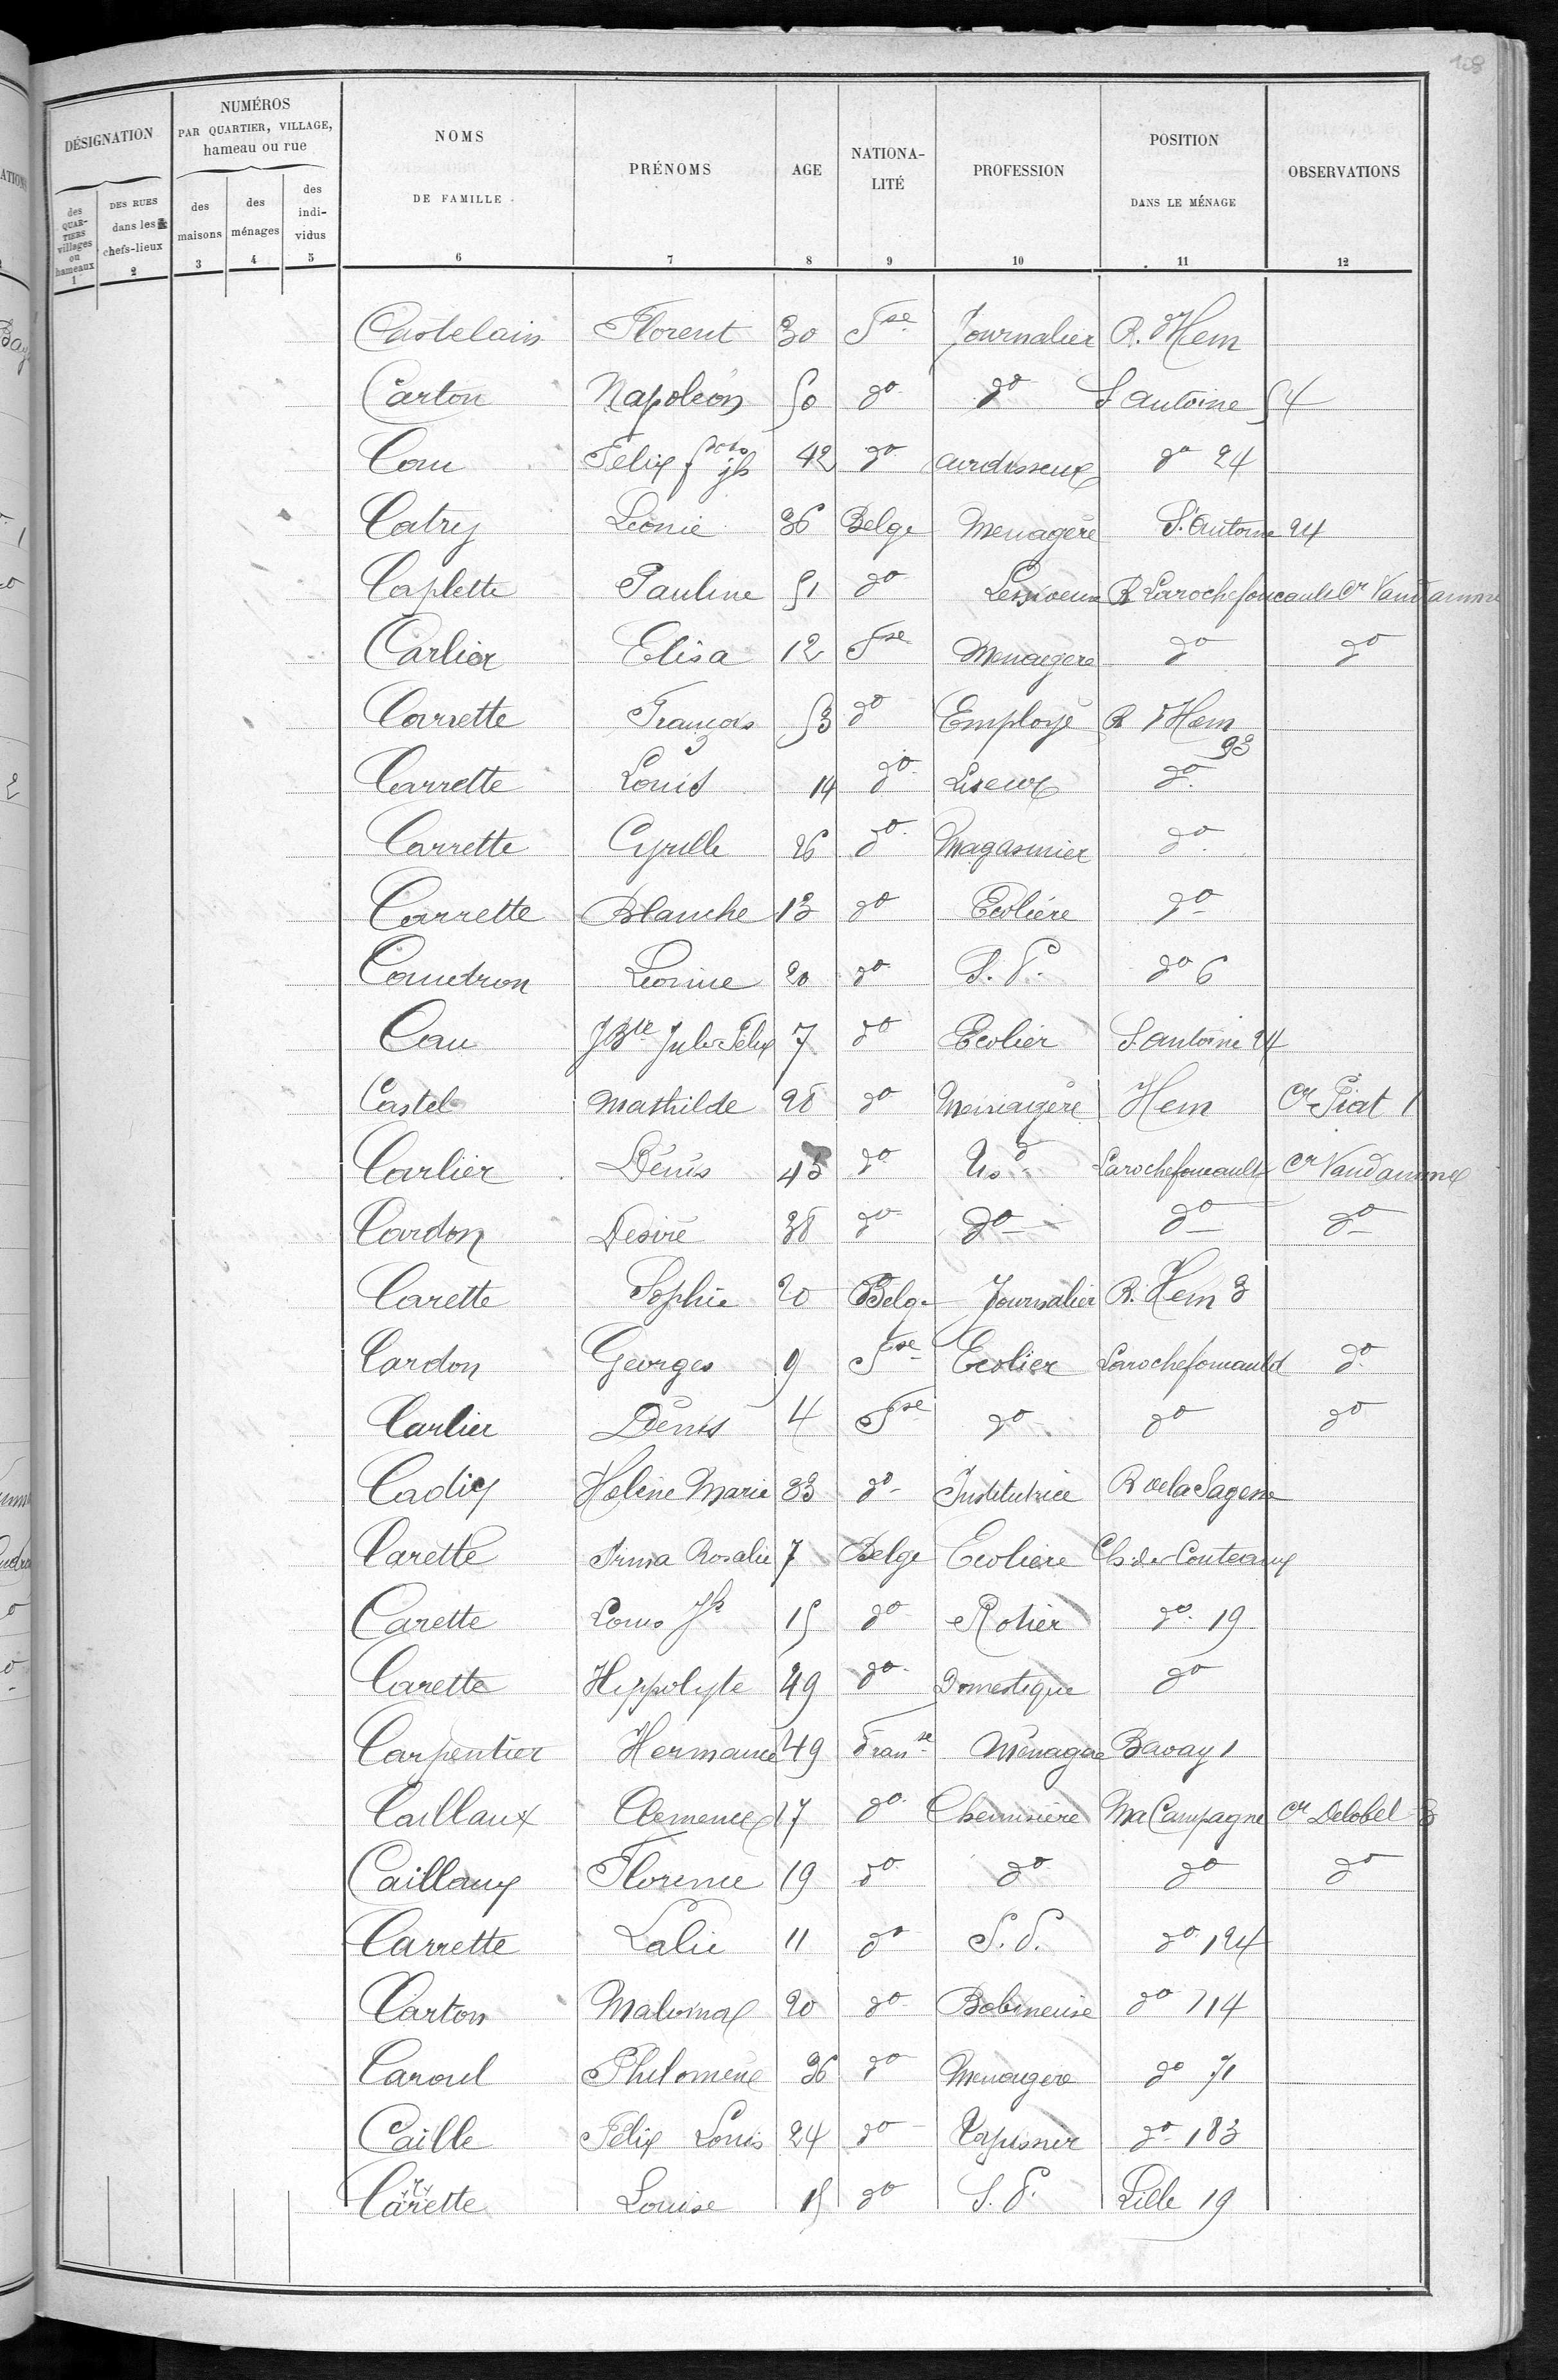 108
DÉSIGNATION
NUMÉROS
PAR QUARTIER, VILLAGE,
hameau ou rue
NOMS
DE FAMILLE
PRÉNOMS
AGE
NATIONA-
LITÉ
PROFESSION
POSITION
DANS LE MÉNAGE
OBSERVATIONS
des QUAR-TIERS villages ou hameaux
DES RUES dans les chefs-lieux
des maisons
des ménages
des indi-vidus
1 2 3 4 5 6 7 8 9 10 11 12
Castelain Florent 30 Fse Journalier R. d'Hem
Carton Napoléon 50 do do St Antoine 54
Cau Felix 42 do ourdisseur do 24
Catry Léonie 36 Belge Menagère St. Antoine 24
Caplette Pauline 51 do R Larochefoucault Cr Vandamme
Carlier Elisa 12 Fse Menagère do do
Carrette François 53 do Employé R d'Hem 93
Carrette Louis 14 do Liseur do
Carrette Cyrille 26 do Magasinier do
Carrette Blanche 13 do Ecolière do
Caudron Leonie 20 do S. P. do 6
Cau JBte Jules Félix 7 do Ecolier St Antoine 24
Castel Mathilde 28 do Menagère Hem Cr Piat 1
Carlier Denis 43 do Tisd Larochefoucault Cr Vandamme
Cardon Desiré 38 do do do do
Carette Sophie 20 Belge Journalier R. Hem 3
Cardon Georges 9 Fse Ecolier Larochefoucauld do
Carlier Denis 4 Fse do do do
Cadix Helène Marie 33 do Institutrice R de la Sagesse
Carette Irma Rosalie 7 Belge Ecolière Ch. des Couteaux
Carette Louis Jh 15 do Rotier do 19
Carette Hippolyte 49 do Domestique do
Carpentier Hermance 49 Franse Ménagère Bavay 1
Caillaux Clemence 17 do Chemisière Ma Campagne Cr Delobel 3
Caillaux Florence 19 do do do do
Carrette Lalie 11 do S. P. do 124
Carton Malvina 20 do Bobineuse do 114
Caroul Philomène 36 do Menagère do 71
Caille Félix Louis 24 do Tapissier do 183
Carette Louise 15 do S. P. Lille 19